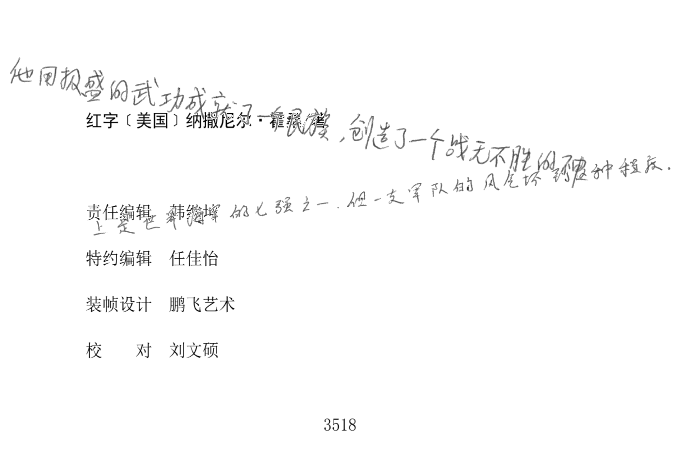 他用极盛的武功成就了一个民族，创造了一个战无不胜的
红字〔美国〕纳撒尼尔·霍
上是世界海军的七强之一．但一支军队的风气坏到这种程度．
责任编辑 韩继坤
特约编辑 任佳怡
装帧设计 鹏飞艺术
校 对 刘文硕
3518